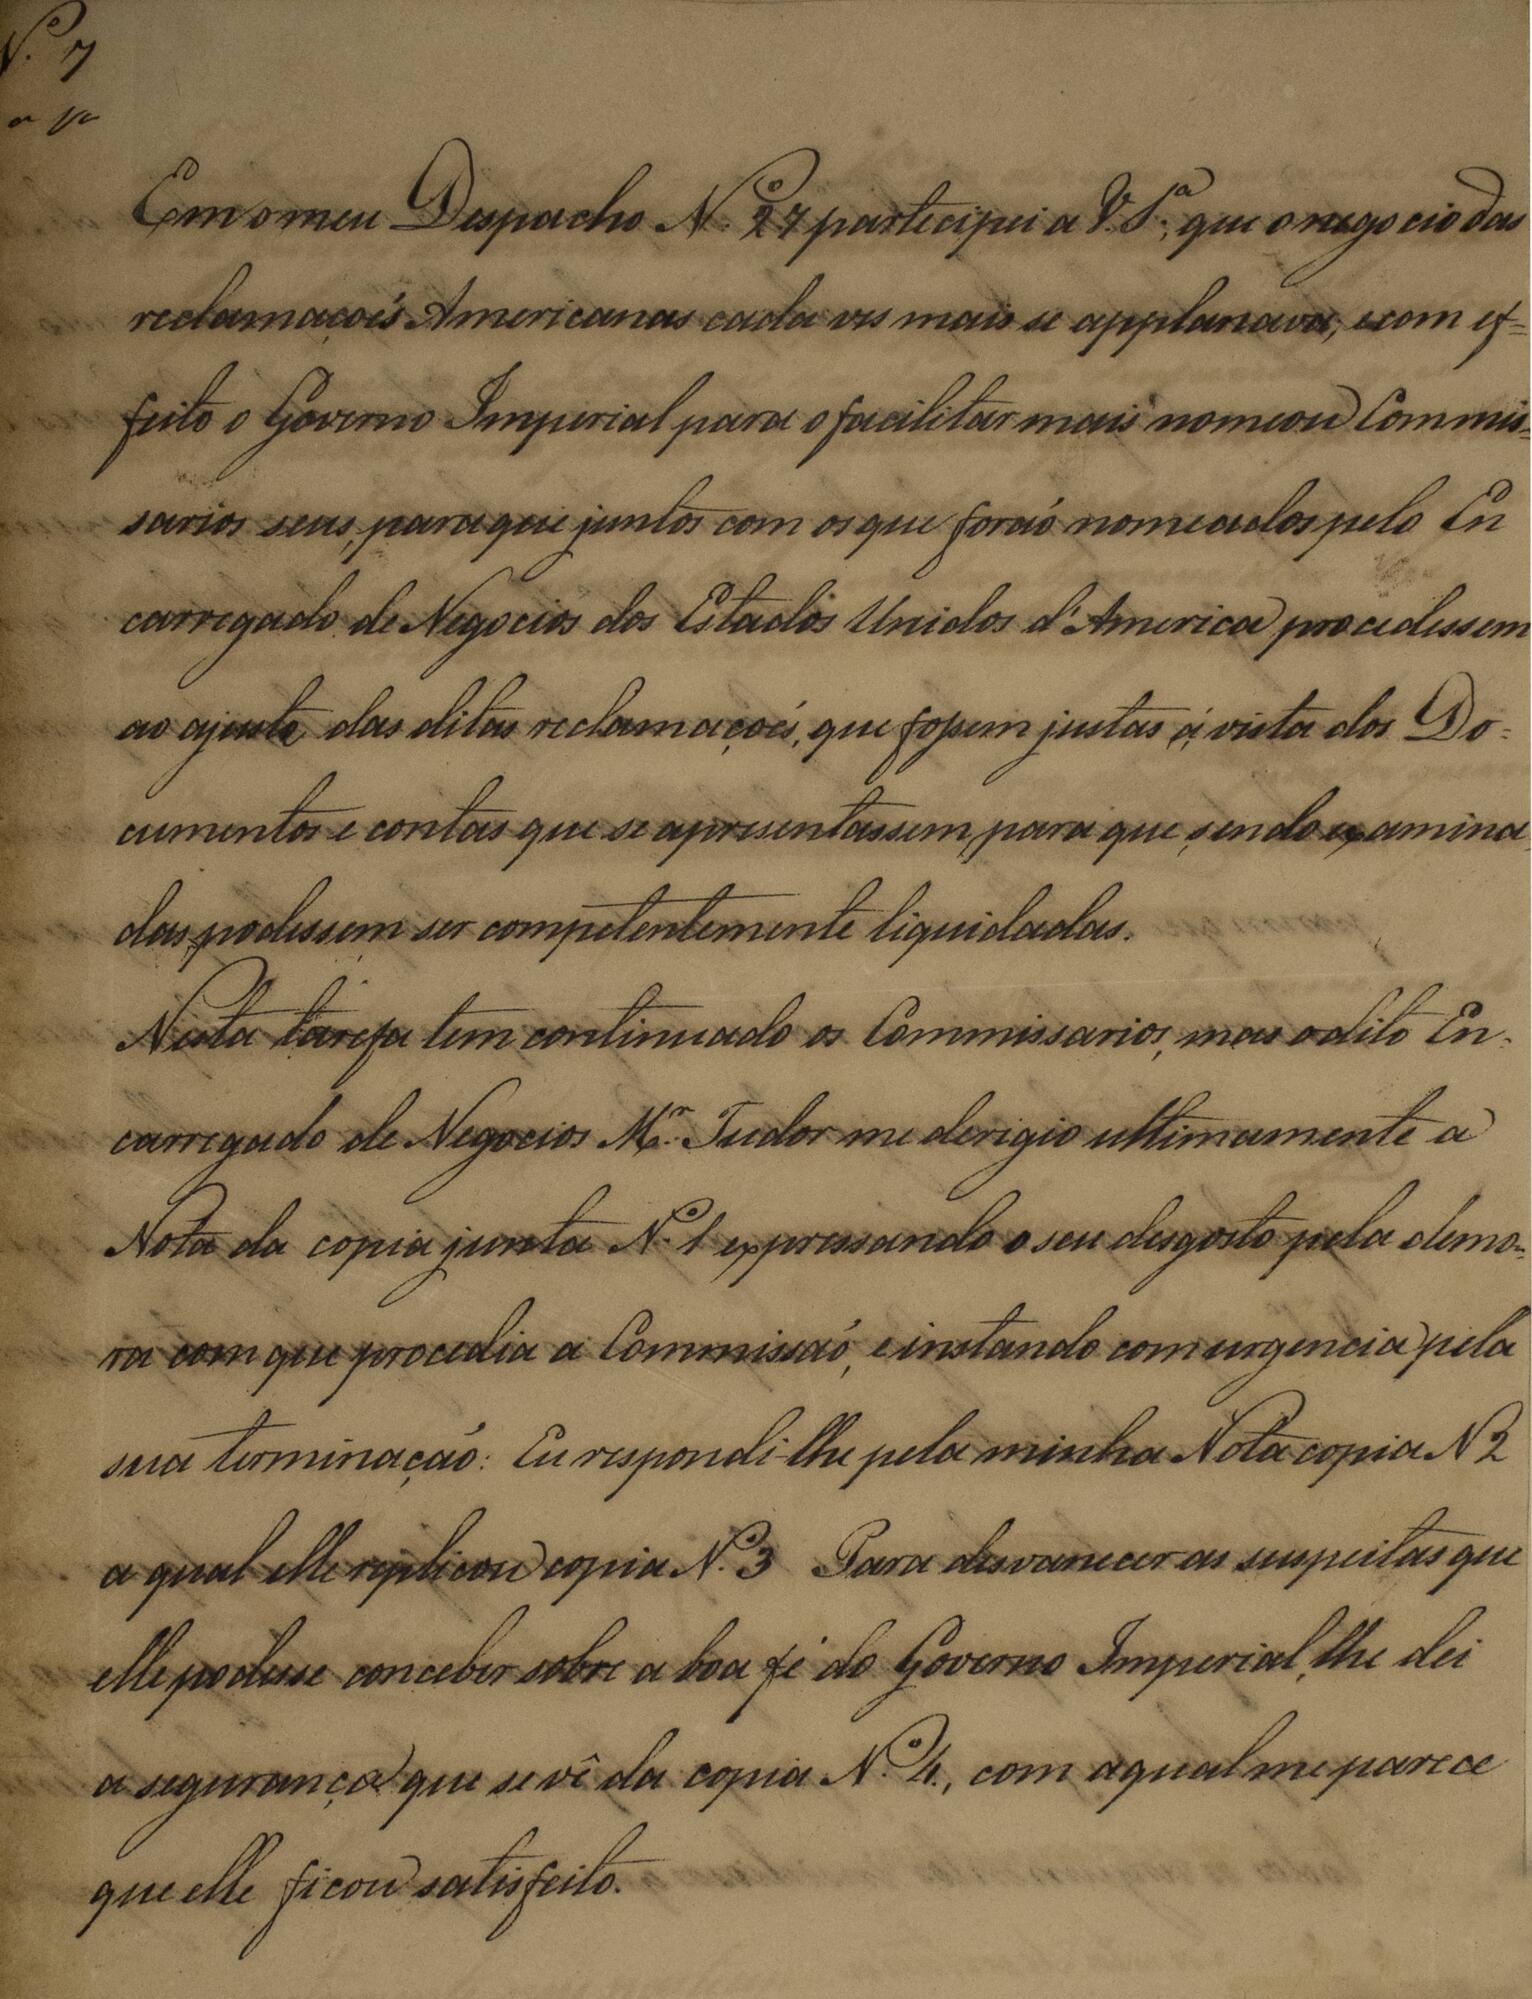 Nº 7
Em o meu Despacho Nº 27 partecipei a V. S.ª, que o negocio das
reclamaçoẽs Americanas cada ves mais se applanava, e com ef=
feito o Governo Imperial para o facilitar mais nomeou Commis=
sarios seus, para que juntos com os que foraõ nomeados pelo En
carregado de Negocios dos Estados Unidos d'America procedessem
ao ajuste das ditas reclamaçoẽs, que fossem justas á vista dos Do=
cumentos e contas que se apresentassem, para que sendo examina
das podessem ser competentemente liquidadas.
Nesta tarefa tem continuado os Commissarios, mas o dito En=
carregado de Negocios Mr. Tudor me derigio ultimamente a
Nota da copia junta Nº 1 expressando o seu desgosto pela demo=
ra com que procedia a Commissaõ, e instando com urgencia pela
sua terminaçaõ: Eu respondi-lhe pela minha Nota copia N 2
a qual elle replicou copia Nº 3 Para desvanecer as suspeitas que
elle podesse conceber sobre a boa fé do Governo Imperial, lhe dei
a segurança que se vê da copia Nº 4, com a qual me parece
que elle ficou satisfeito.